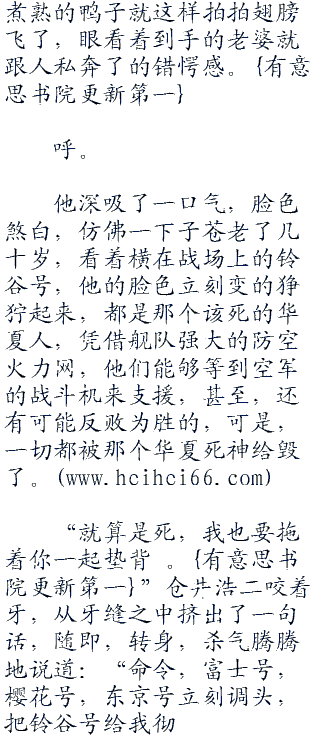 煮熟的鸭子就这样拍拍翅膀
飞了，眼看着到手的老婆就
跟人私奔了的错愕感。{有意
思书院更新第一}
呼。
他深吸了一口气，脸色
煞白，仿佛一下子苍老了几
十岁，看着横在战场上的铃
谷号，他的脸色立刻变的狰
狞起来，都是那个该死的华
夏人，凭借舰队强大的防空
火力网，他们能够等到空军
的战斗机来支援，甚至，还
有可能反败为胜的，可是，
一切都被那个华夏死神给毁
了。(www.hcihci66.com)
“就算是死，我也要拖
着你一起垫背 。{有意思书
院更新第一}”仓井浩二咬着
牙，从牙缝之中挤出了一句
话，随即，转身，杀气腾腾
地说道：“命令，富士号，
樱花号，东京号立刻调头，
把铃谷号给我彻